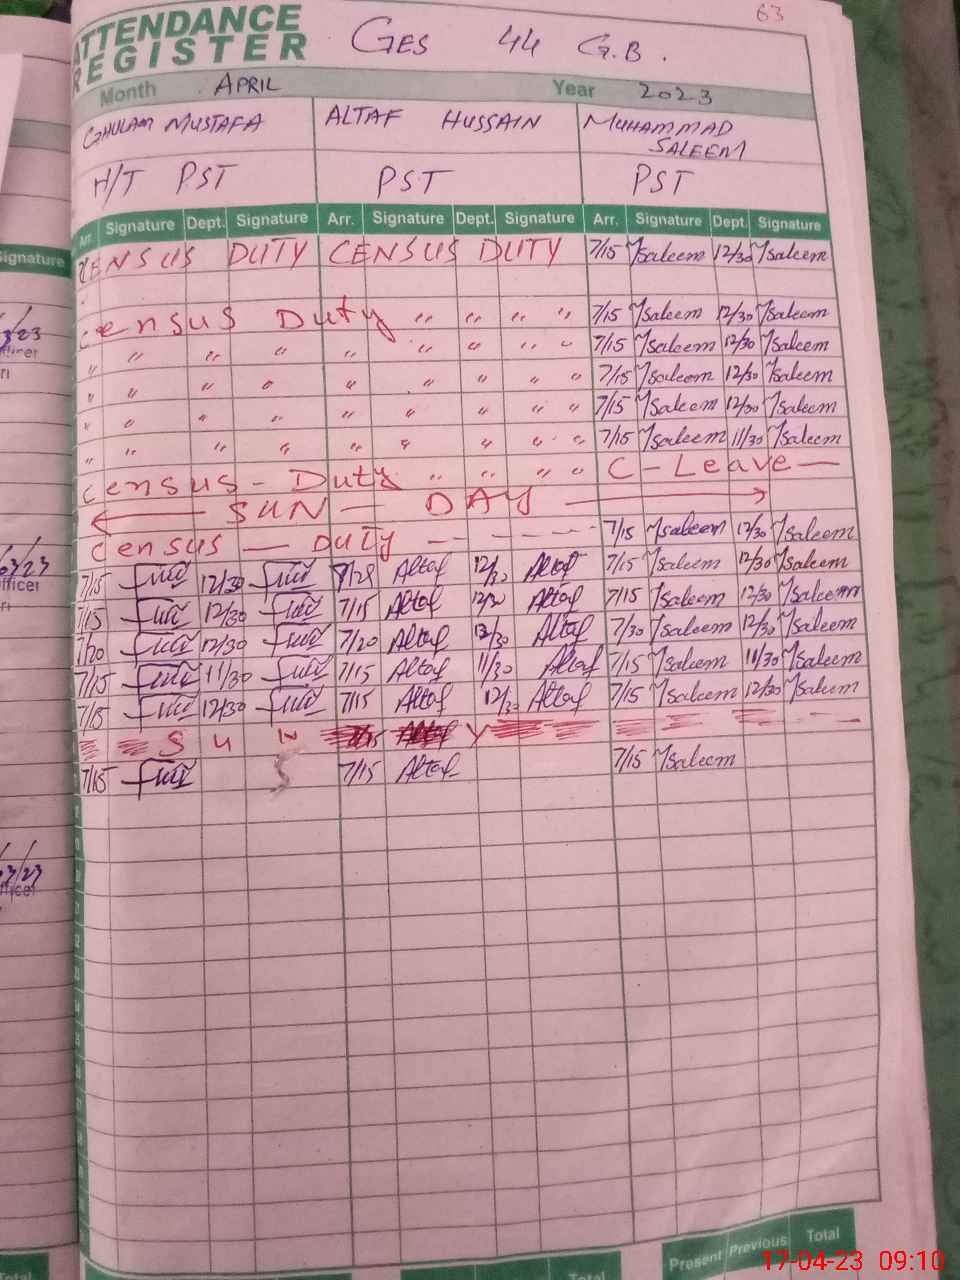 63
ATTENDANCE
REGISTER
GES 44 G.B.
Month APRIL Year 2023
GHULAM MUSTAFA ALTAF HUSSAIN MUHAMMAD SALEEM
H/T PST PST PST
Arr. Signature Dept. Signature Arr. Signature Dept. Signature Arr. Signature Dept. Signature
CENSUS DUTY CENSUS DUTY 7/15 Msaleem 12/30 Msaleem
Census Duty " " " " 7/15 Msaleem 12/30 Msaleem
" " " " " " " " " 7/15 Msaleem 12/30 Msaleem
" " " " " " " " " 7/15 Msaleem 12/30 Msaleem
" " " " " " " " " 7/15 Msaleem 12/30 Msaleem
" " " " " " " " " 7/15 Msaleem 11/30 Msaleem
Census - Duty " " " " C - Leave —
SUN — DAY
Census — Duty - - - - - - 7/15 Msaleem 12/30 Msaleem
7/15 12/30 7/28 Altaf 12/30 Altaf 7/15 Msaleem 12/30 Msaleem
7/15 12/30 7/15 Altaf 12/30 Altaf 7/15 Msaleem 12/30 Msaleem
7/20 12/30 7/20 Altaf 12/30 Altaf 7/30 Msaleem 12/30 Msaleem
7/15 11/30 7/15 Altaf 11/30 Altaf 7/15 Msaleem 11/30 Msaleem
7/15 12/30 7/15 Altaf 12/30 Altaf 7/15 Msaleem 12/30 Msaleem
S U N Y
7/15 7/15 Altaf 7/15 Msaleem
Present Previous Total
Total
Signature
17-04-23 09:10